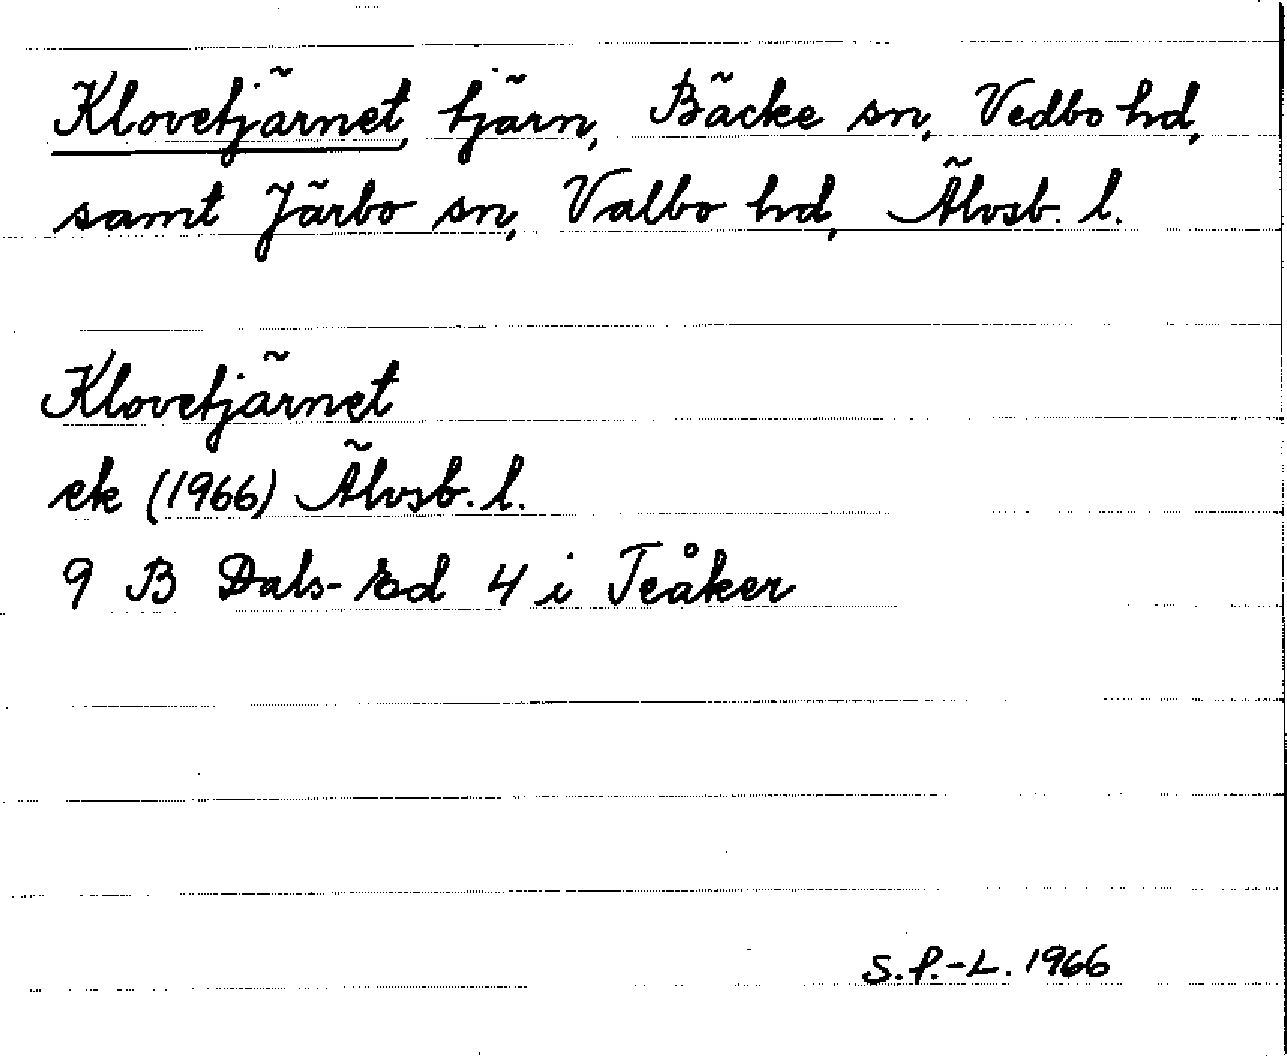 Klovetjärnet, tjärn, Bäcke sn, Vedbo hd,
samt Järbo sn, Valbo hd, Älvsb. l.
Klovetjärnet
ek (1966) Älvsb. l.
9 B Dals-Ed 4 i Teåker
S.P.-L. 1966